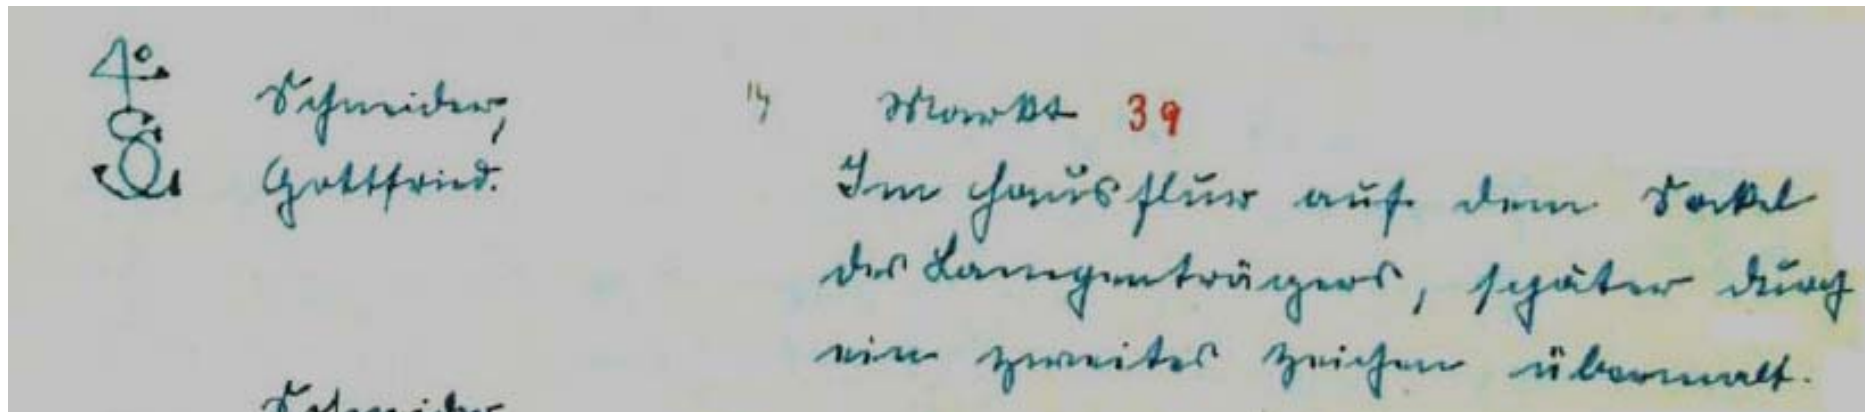 Schneider,
Gottfried.
14 Markt 39
Im Hausflur auf dem Sockel
des Lampenträgers, später durch
ein zweites Zeichen übermalt.
Schneider